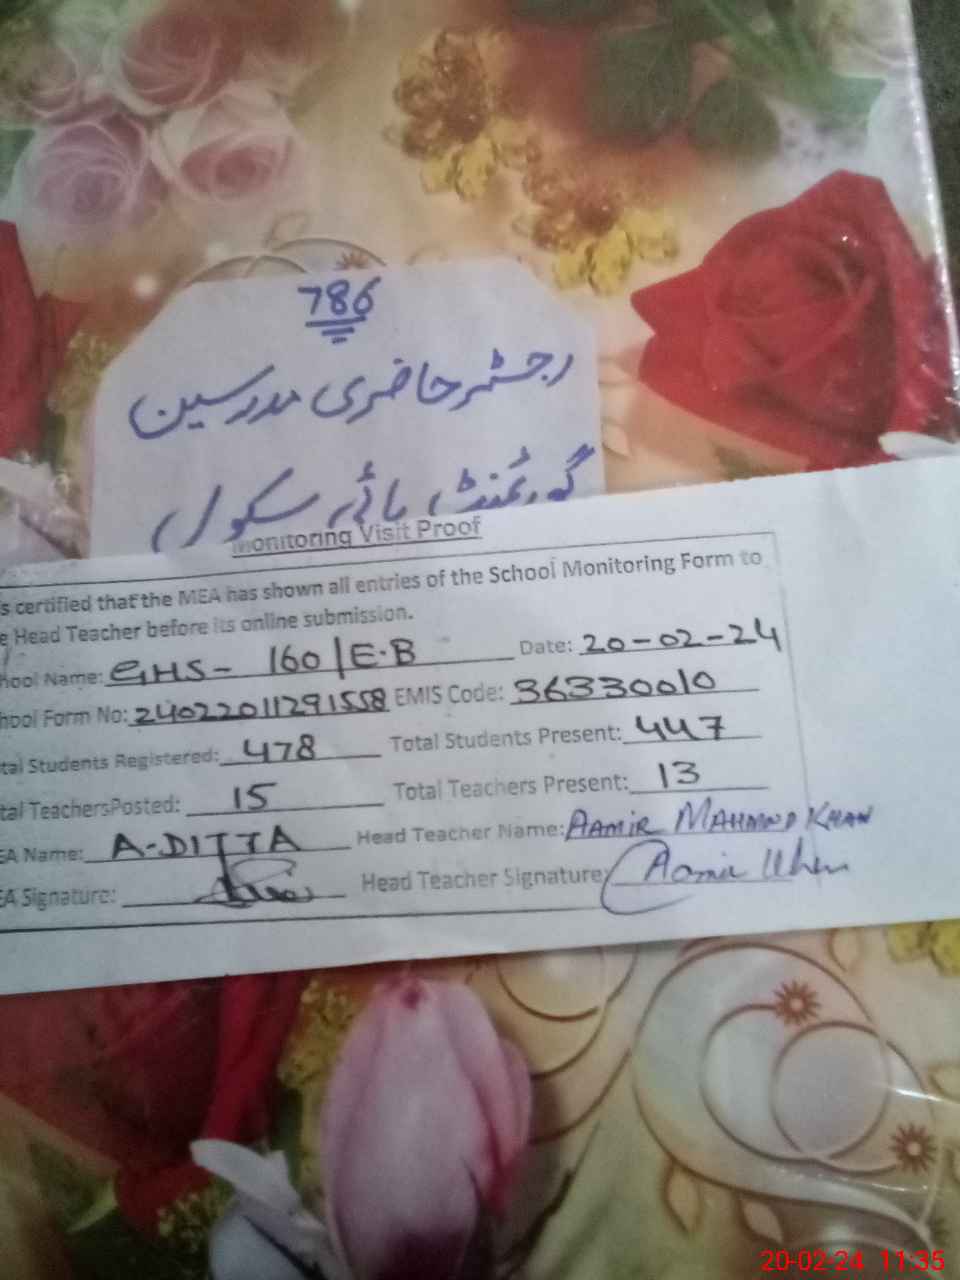 786
رجسٹر حاضری مدرسین
گورنمنٹ ہائی سکول
Monitoring Visit Proof
s certified that the MEA has shown all entries of the School Monitoring Form to
e Head Teacher before its online submission.
hool Name: GHS- 160/E.B Date: 20-02-24
hool Form No: 24022011291558 EMIS Code: 36330010
tal Students Registered: 478 Total Students Present: 447
tal TeachersPosted: 15 Total Teachers Present: 13
EA Name: A-DITTA Head Teacher Name: AAMIR MAHMOOD KHAN
EA Signature: Head Teacher Signature: Aamir Khan
20-02-24 11:35